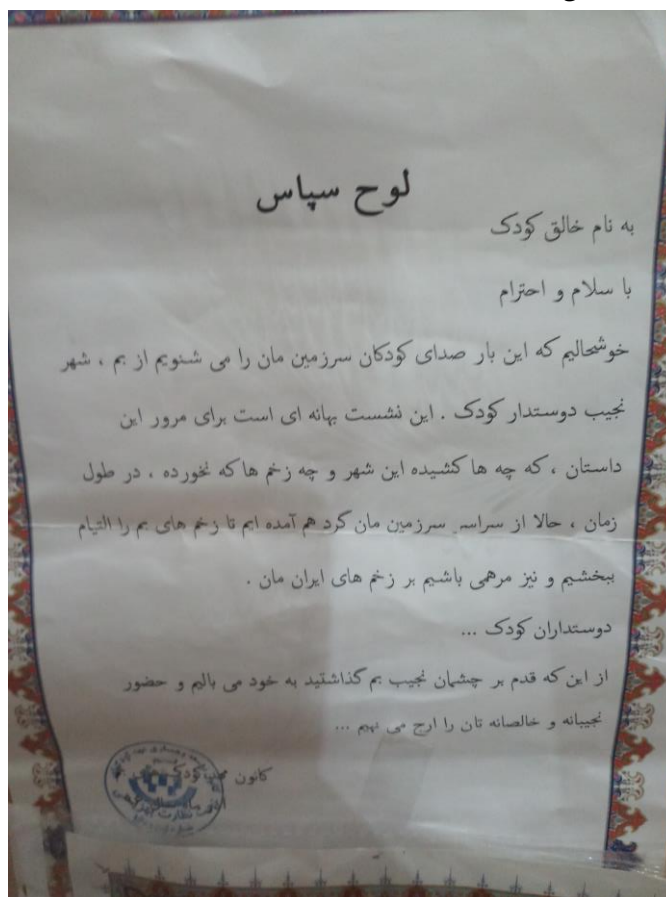 لوح سپاس
به نام خالق کودک
با سلام و احترام
خوشحالیم که این بار صدای کودکان سرزمین مان را می شنویم از بم ، شهر
نجیب دوستدار کودک . این نشست بهانه ای است برای مرور این
داستان ، که چه ها کشیده این شهر و چه زخم ها که نخورده ، در طول
زمان ، حالا از سراسر سرزمین مان گرد هم آمده ایم تا زخم های بم را التیام
ببخشیم و نیز مرهمی باشیم بر زخم های ایران مان .
دوستداران کودک ...
از این که قدم بر چشمان نجیب بم گذاشتید به خود می بالیم و حضور
نجیبانه و خالصانه تان را ارج می نهیم ...
کانون کودک